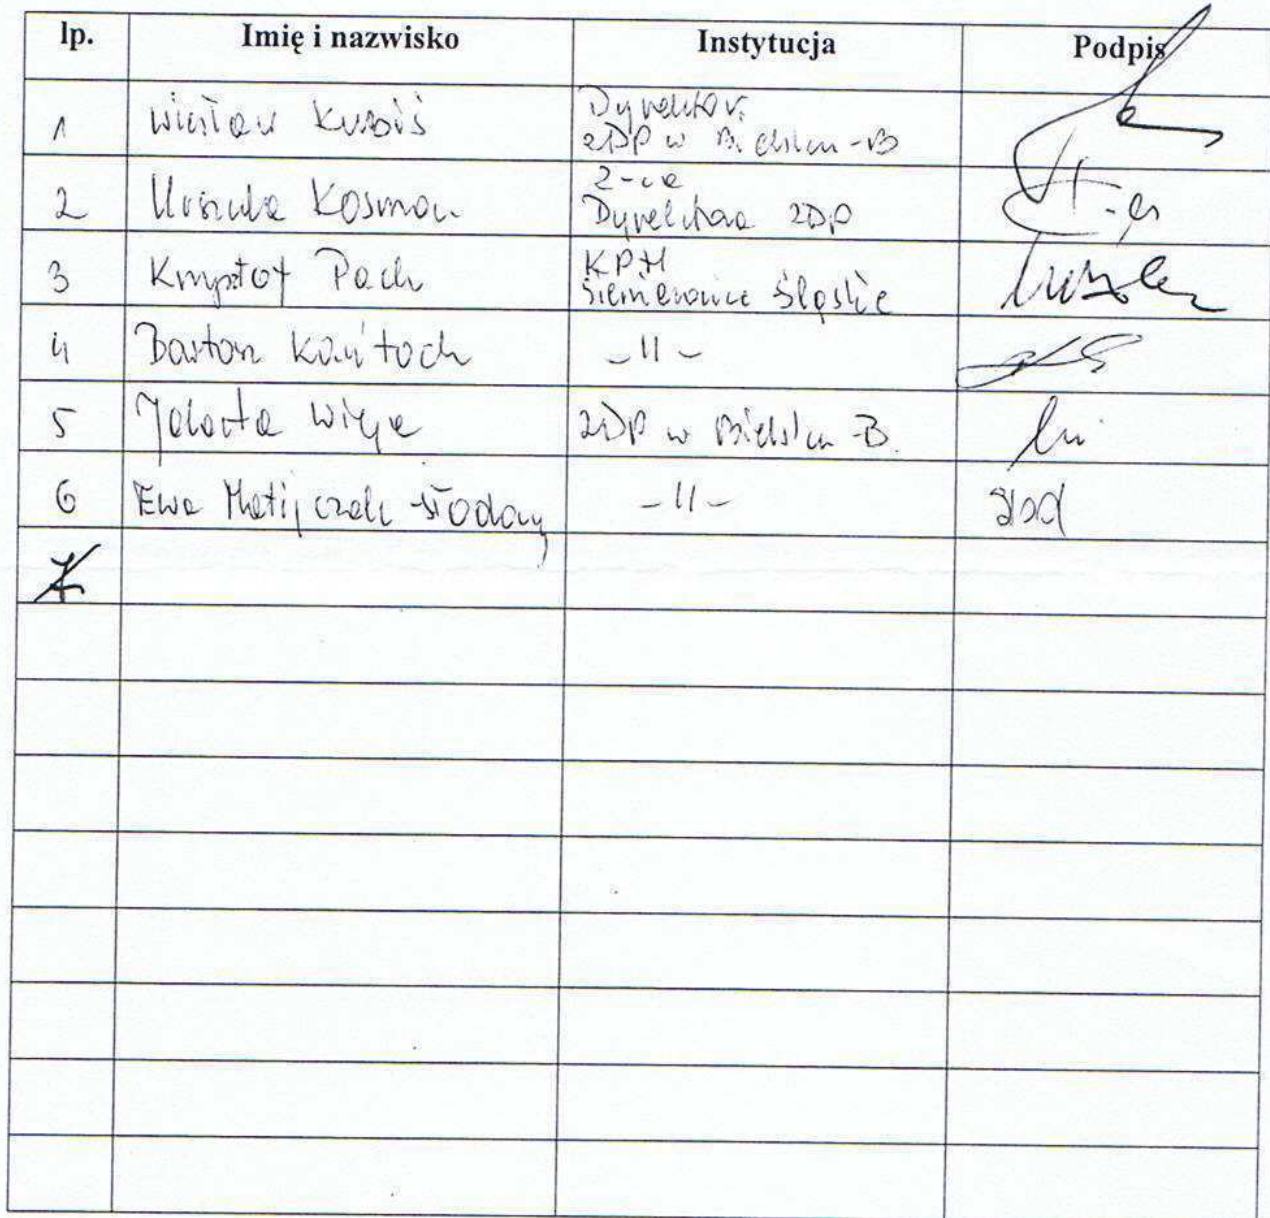 lp. Imię i nazwisko Instytucja Podpis
1 Wiesław Kubiś Dyrektor
ZDP w Bielsku-B
2 Urszula Kosman Z-ca
Dyrektora ZDP
3 Krzysztof Pach KPM
Siemianowice Śląskie
4 Bartosz -II-
5 Jolanta ZDP w Bielsku-B.
6 Ewa -II-